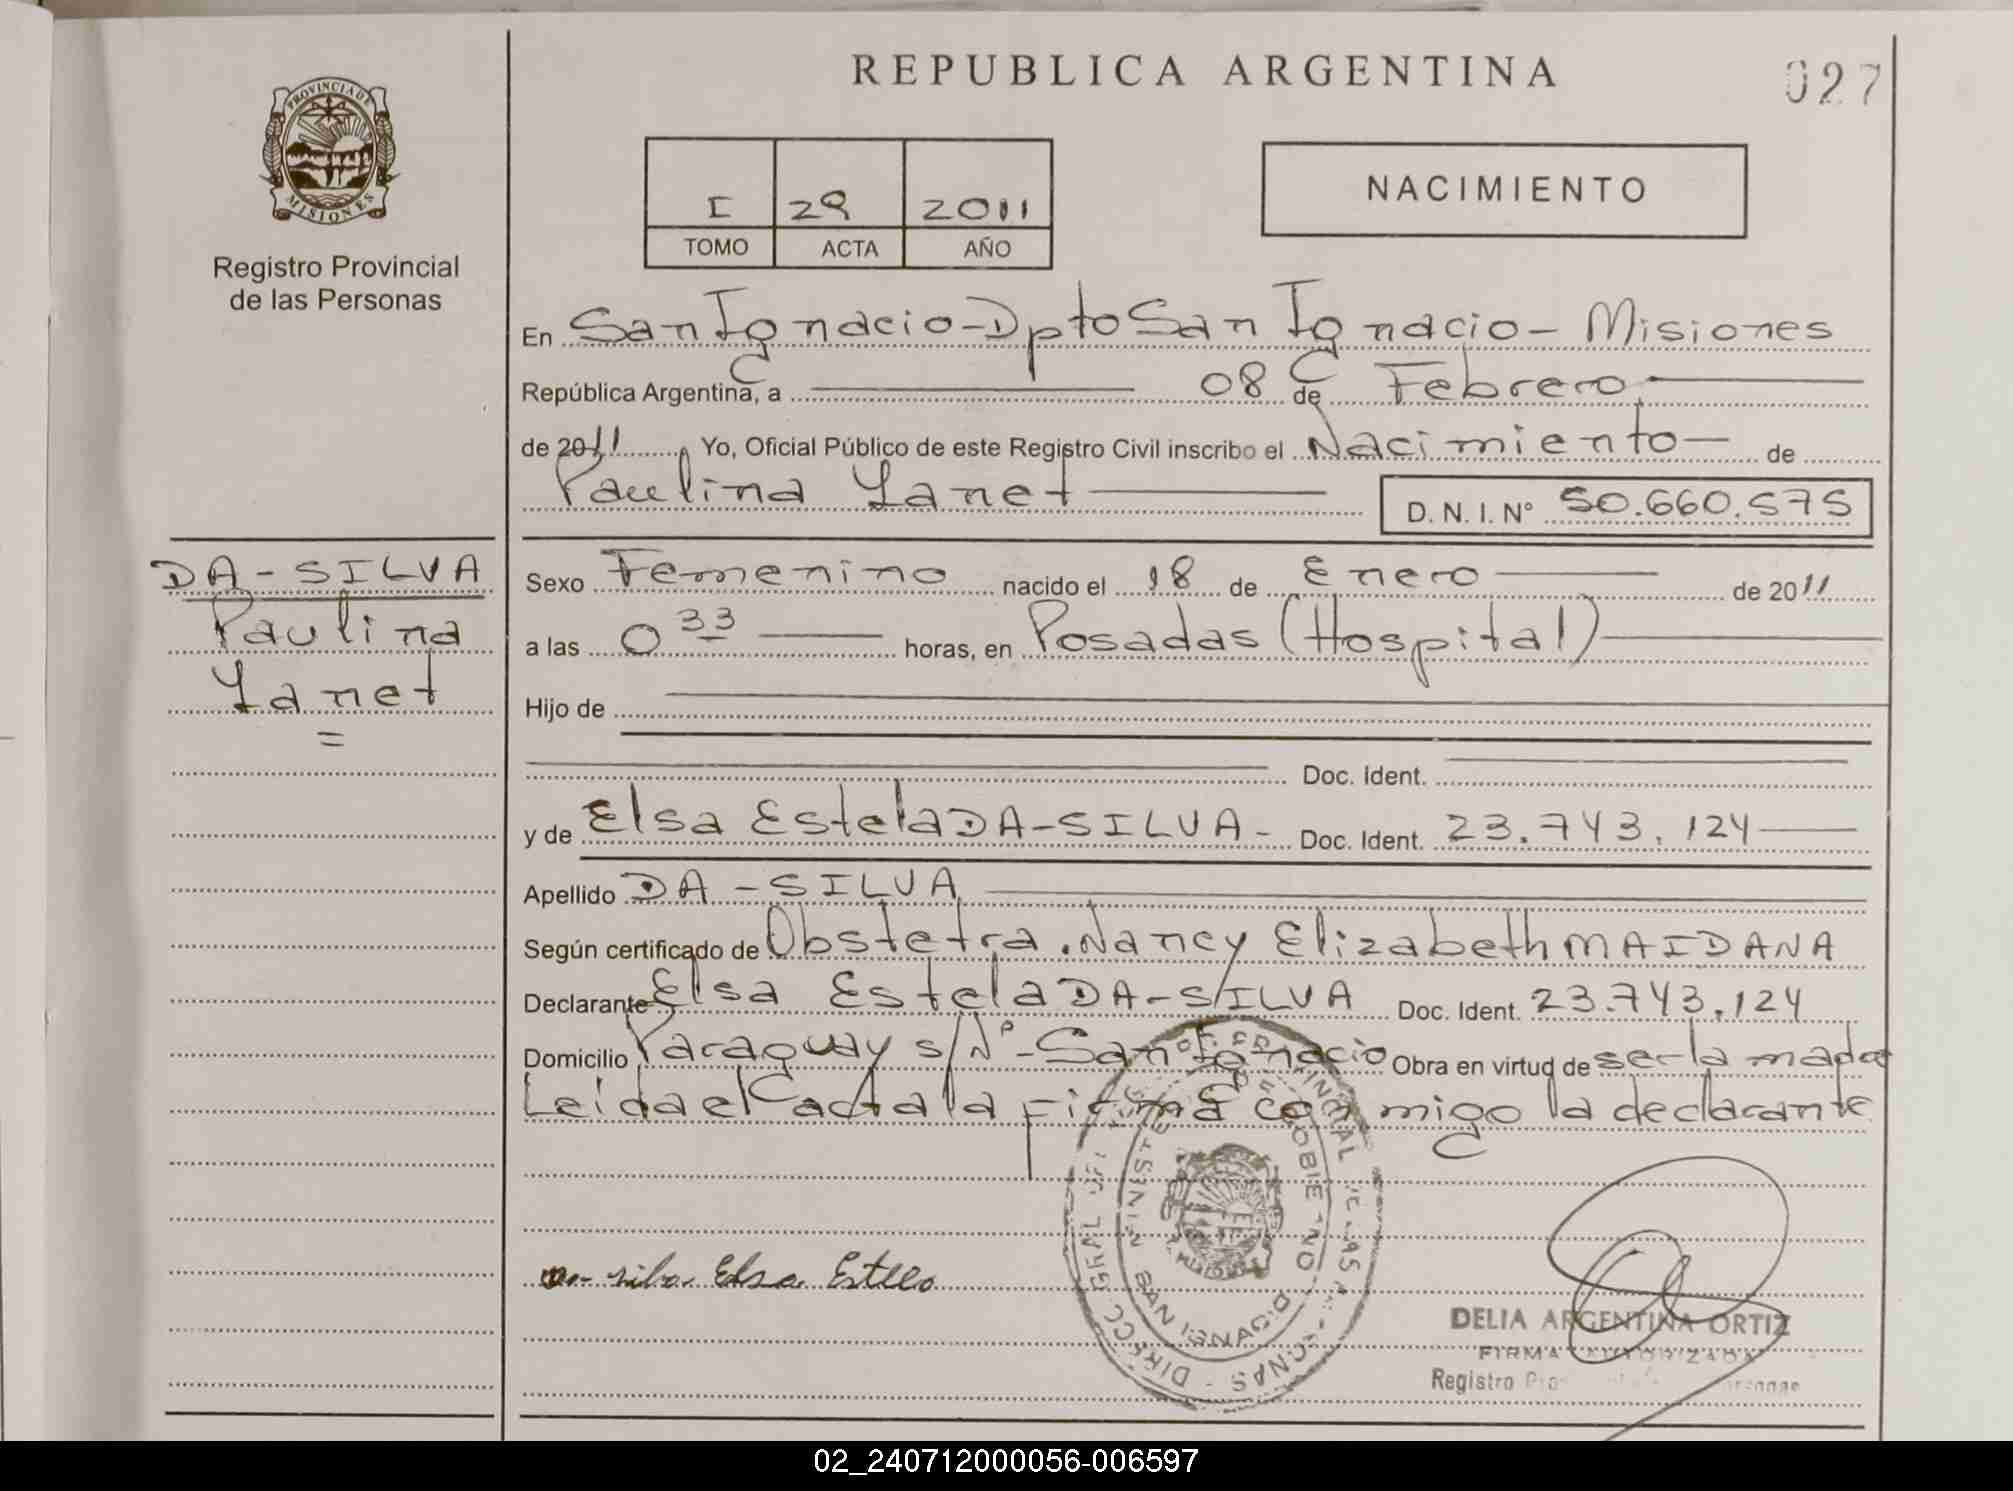 REPUBLICA ARGENTINA
027
PROVINCIA DE
MISIONES
Registro Provincial
de las Personas
I 29 2011
TOMO ACTA AÑO
NACIMIENTO
En San Ignacio - Dpto San Ignacio - Misiones
República Argentina, a 08 de Febrero
de 2011 Yo, Oficial Público de este Registro Civil inscribo el Nacimiento de
Paulina Yanet
D. N. I. N° 50.660.575
DA-SILVA
Paulina
Yanet
Sexo Femenino nacido el 18 de Enero de 2011
a las 0 33 horas, en Posadas (Hospital)
Hijo de
Doc. Ident.
y de Elsa Estela DA-SILVA- Doc. Ident. 23.743.124
Apellido DA-SILVA
Según certificado de Obstetra. Nancy Elizabeth MAIDANA
Declarante Elsa Estela DA-SILVA Doc. Ident. 23.743.124
Domicilio Paraguay s/Nº - San Ignacio Obra en virtud de ser la madre
Leida el acta la firma con migo la declarante
Elsa Estela
DELIA ARGENTINA ORTIZ
FIRMA AUTORIZADA
Registro
SAN IGNACIO
02_240712000056-006597